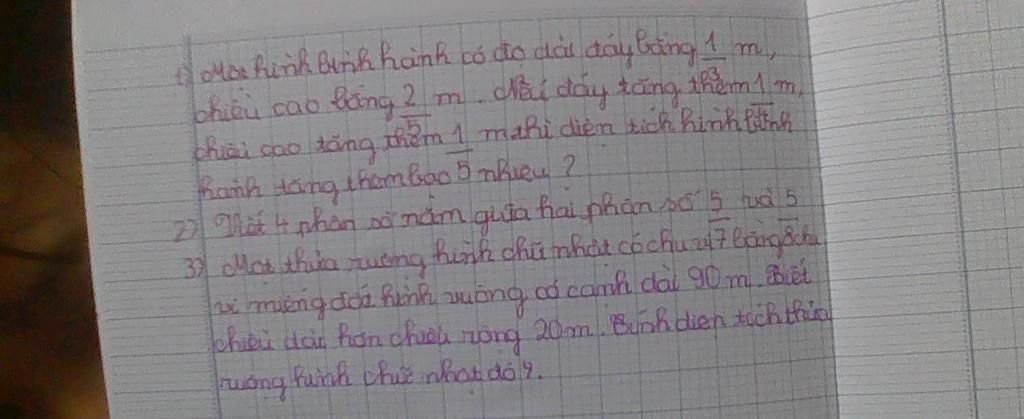 1) Một hình bình hành có độ dài đáy bằng 1/3 m,
chiều cao bằng 2/5 m. Nếu đáy tăng thêm 1 m,
chiều cao tăng thêm 1/5 m thì diện tích hình bình
hành tăng thêm bao nhiêu?
2) Viết 4 phân số nằm giữa hai phân số 5/7 và 5/8
3) Một thửa ruộng hình chữ nhật có chu vi bằng chu
vi miếng đất hình vuông có cạnh dài 90 m. Biết
chiều dài hơn chiều rộng 20m. Tính diện tích thửa
ruộng hình chữ nhật đó?